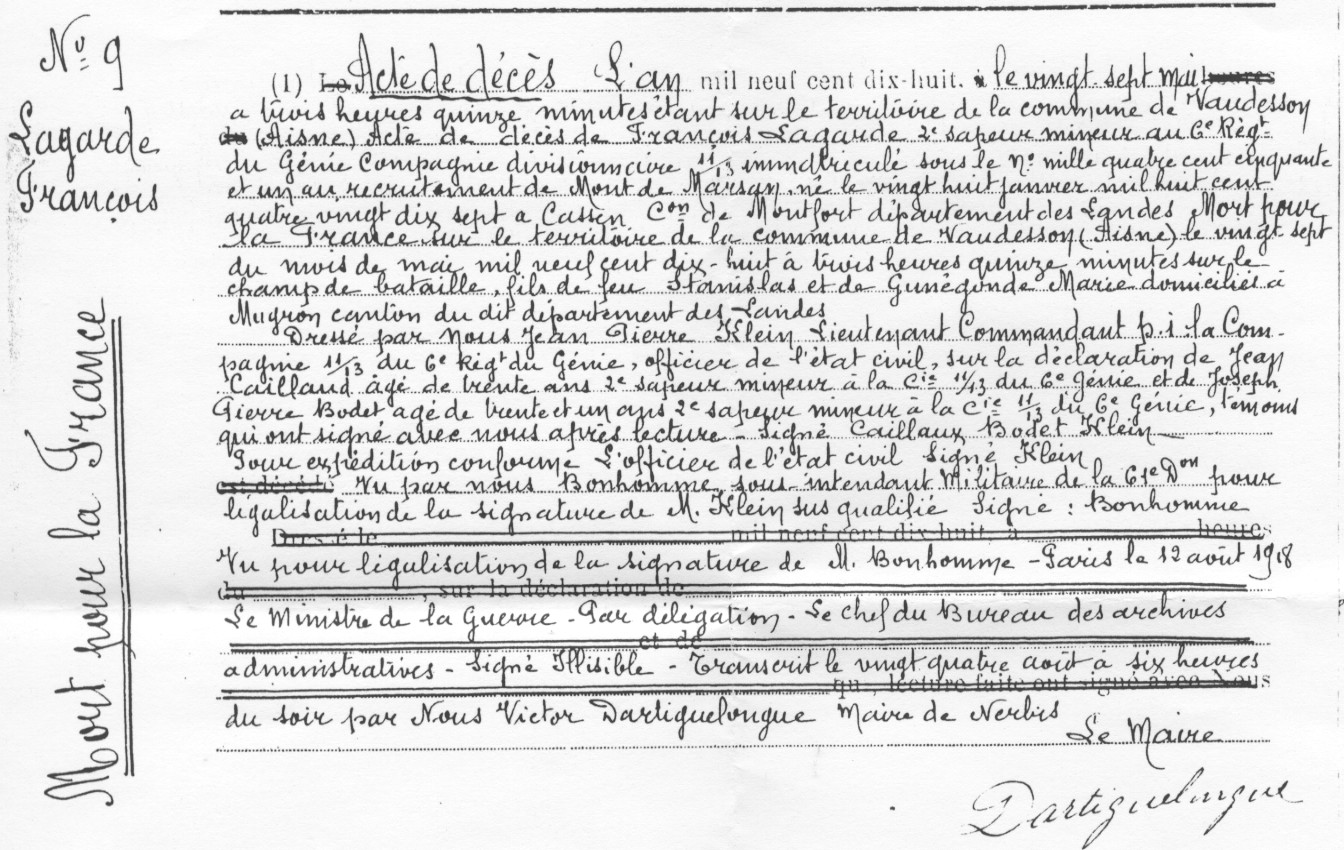 Nº 9
Lagarde
François
Mort pour la France
(1) Le Acte de décès L'an mil neuf cent dix-huit, à le vingt sept mai heures
a trois heures quinze minutes étant sur le territoire de la commune de Vaudesson
du (Aisne) Acte de décès de François Lagarde 2e sapeur mineur au 6e Régt
du Génie Compagnie divisionnaire 11/13 immatriculé sous le nº mille quatre cent cinquante
et un au recrutement de Mont de Marsan, né le vingt huit janvier mil huit cent
quatre vingt dix sept a Cassen Con de Montfort département des Landes Mort pour
la France sur le territoire de la commune de Vaudesson (Aisne) le vingt sept
du mois de mai mil neuf cent dix-huit à trois heures quinze minutes sur le
champ de bataille, fils de feu Stanislas et de Gunégonde Marie domiciliés à
Mugron canton du dit département des Landes
Dressé par nous Jean Pierre Klein Lieutenant Commandant p.i la Com-
pagnie 11/13 du 6e Régt du Génie, officier de l'état civil, sur la déclaration de Jean
Caillaud âgé de trente ans 2e sapeur mineur à la Cie 11/13 du 6e Génie et de Joseph
Pierre Bodet agé de trente et un ans 2e sapeur mineur à la Cie 11/13 du 6e Génie, témoins
qui ont signé avec nous après lecture - Signé Caillaux Bodet Klein
Pour expédition conforme L'officier de l'état civil Signé Klein
est décédé Vu par nous Bonhomme sous-intendant Militaire de la 61e Don pour
légalisation de la signature de M. Klein sus qualifié Signé : Bonhomme
Dressé le mil neuf cent dix-huit, à heures
Vu pour légalisation de la signature de M. Bonhomme - Paris le 12 août 1918
du , sur la déclaration de
Le Ministre de la Guerre - Par délégation - Le chef du Bureau des archives
et de
administratives - Signé Illisible - Transcrit le vingt quatre août à six heures
qui, lecture faite ont signé avec Nous
du soir par Nous Victor Dartiguelongue Maire de Nerbis
Le Maire
Dartiguelongue